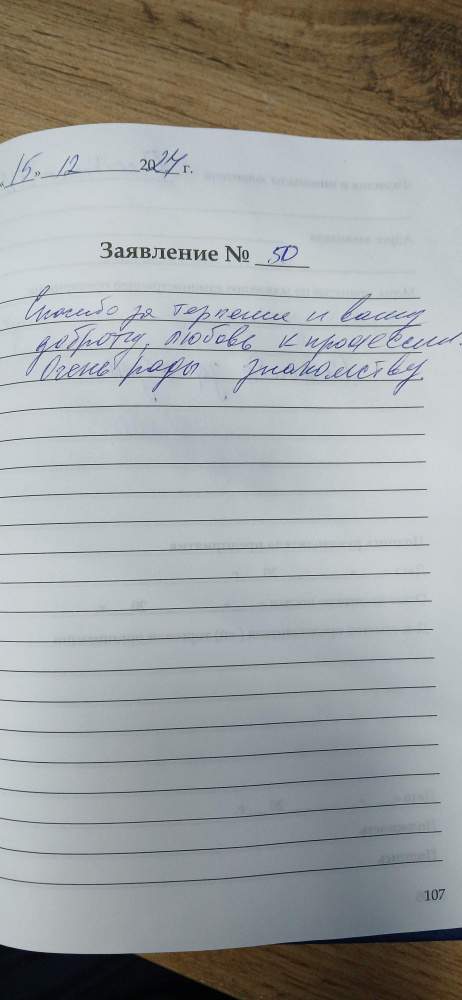 «15» 12 2024 г.
Заявление № 50
Спасибо за терпение и вашу
доброту, любовь к профессии.
Очень рады знакомству.
107